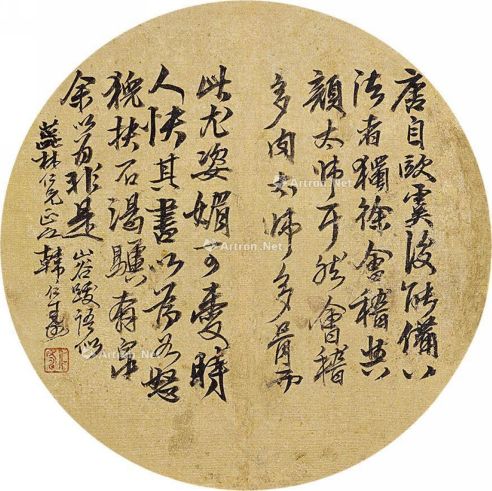 唐自歐虞後能備八
法者獨徐會稽與
顏太師耳然會稽
多肉太師多骨而
此尤姿媚可愛時
人其書以為如怒
猊抉石渴驥奔泉
余以為非是 山谷跋語似
蕊林仁兄正之 韓仁壽
Artron.Net